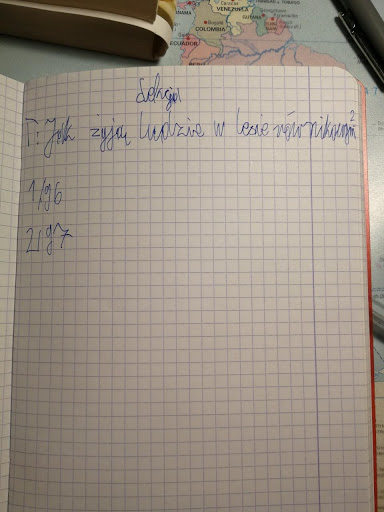 CARACAS
VENEZUELA
PANAMA
Bogotá
COLOMBIA
GUYANA
ECUADOR
Lekcja
T: Jak żyją ludzie w lesie równikowym?
1/96
2/97